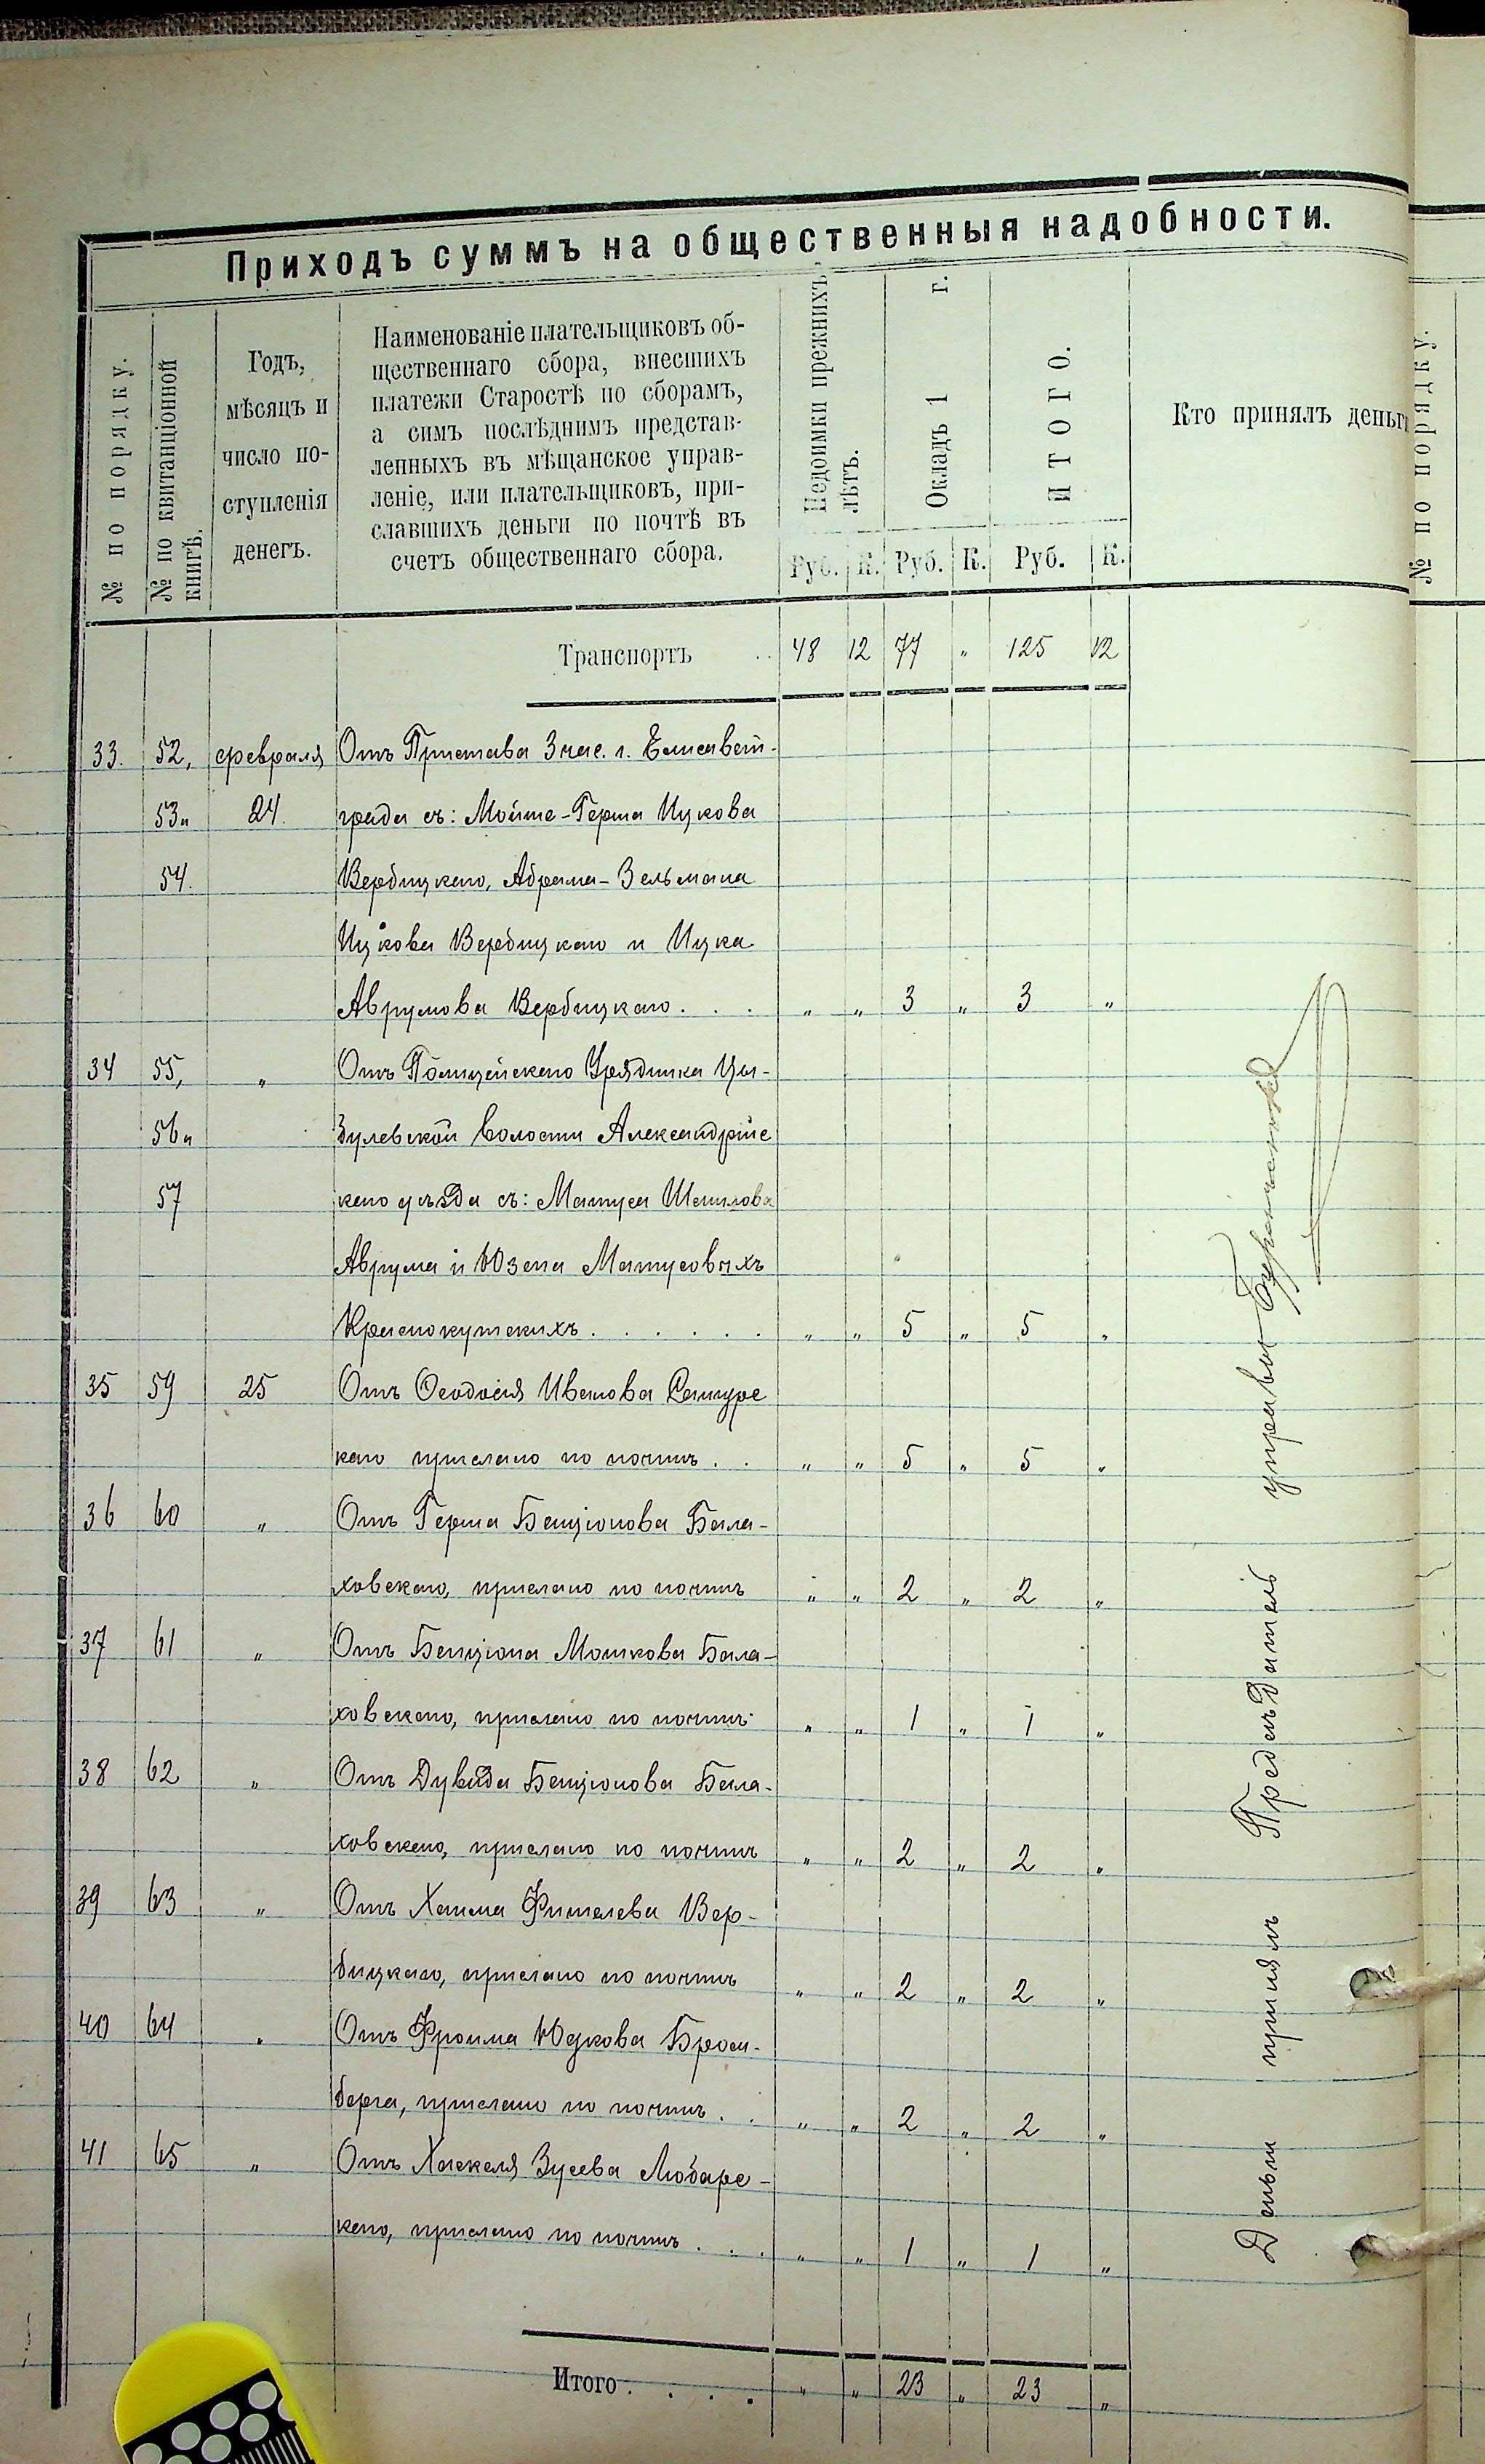 Приходъ суммъ на общественныя надобности.
№ по порядку.
№ по квитанціонной
книгѣ.
Годъ,
мѣсяцъ и
число по-
ступленія
денегъ.
Наименованіе плательщиковъ об-
щественнаго сбора, внесшихъ
платежи Старостѣ по сборамъ,
а симъ послѣднимъ представ-
ленныхъ въ мѣщанское управ-
леніе, или плательщиковъ, при-
славшихъ деньги по почтѣ въ
счетъ общественнаго сбора.
Недоимки прежнихъ
лѣтъ.
Окладъ 1 г.
ИТОГО.
Руб. К. Руб. К. Руб. К.
Кто принялъ деньги
№ по порядку.
Транспортъ 48 12 77 " 125 12
33. 52, февраля Отъ Пристава 3 час. г. Елисавет-
53 и 24. града съ: Мойше-Герша Ицкова
54. Вербицкаго, Абрама-Зельмана
Ицкова Вербицкаго и Ицка
Аврумова Вербицкаго. . . " " 3 " 3 "
34 55, " Отъ Полицейскаго Урядника Цы-
56 и булевской волости Александрійс
57 каго уѣзда съ: Матуса Шмилова
Аврума и Юзепа Матусовыхъ
Краснокутскихъ. . . . . . " " 5 " 5 "
35 59 25 Отъ Ѳеодосія Иванова
каго прислано по почтѣ. . " " 5 " 5 "
36 60 " Отъ Герша Бенціонова Бала-
ховскаго, прислано по почтѣ " " 2 " 2 "
37 61 " Отъ Бенціона Мошкова Бала-
ховскаго, прислано по почтѣ " " 1 " 1 "
38 62 " Отъ Дувида Бенціонова Бала-
ховскаго, прислано по почтѣ " " 2 " 2 "
39 63 " Отъ Хаима Фишелева Вер-
бицкаго, прислано по почтѣ " " 2 " 2 "
40 64 " Отъ Фроима Юдкова Бром-
берга, прислано по почтѣ. . " " 2 " 2 "
41 65 " Отъ Хаскеля Зусева Любарс-
каго, прислано по почтѣ. . . " " 1 " 1 "
Итого. . . . " " 23 " 23 "
Деньги принялъ Предсѣдатель управы